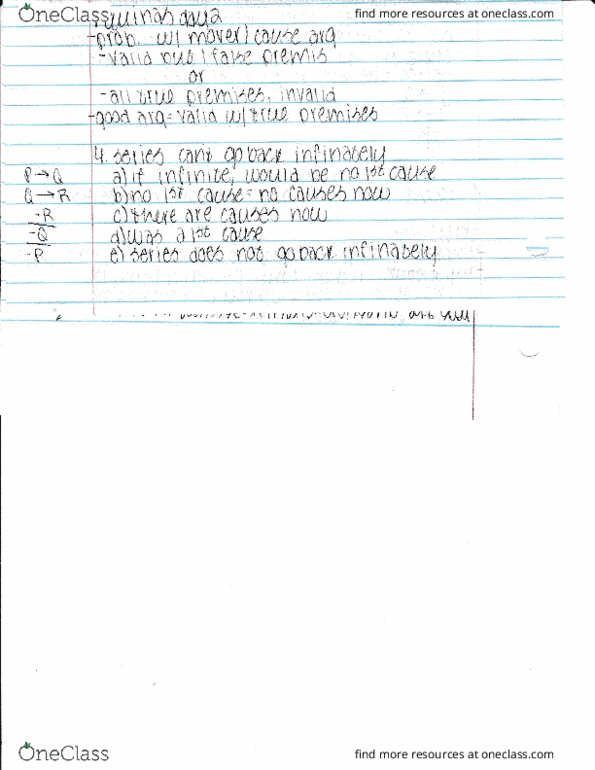 OneClass
find more resources at oneclass.com
day 2
-prob. w/ mover/cause arg
-valid but 1 false premis
or
-all true premises, invalid
-good arg=valid w/ true premises
4. series can't go back infinately
P→Q a) if infinite, would be no 1st cause
Q→R b) no 1st cause=no causes now
-R c) there are causes now
-Q d) was a 1st cause
-P e) series does not go back infinately
OneClass
find more resources at oneclass.com